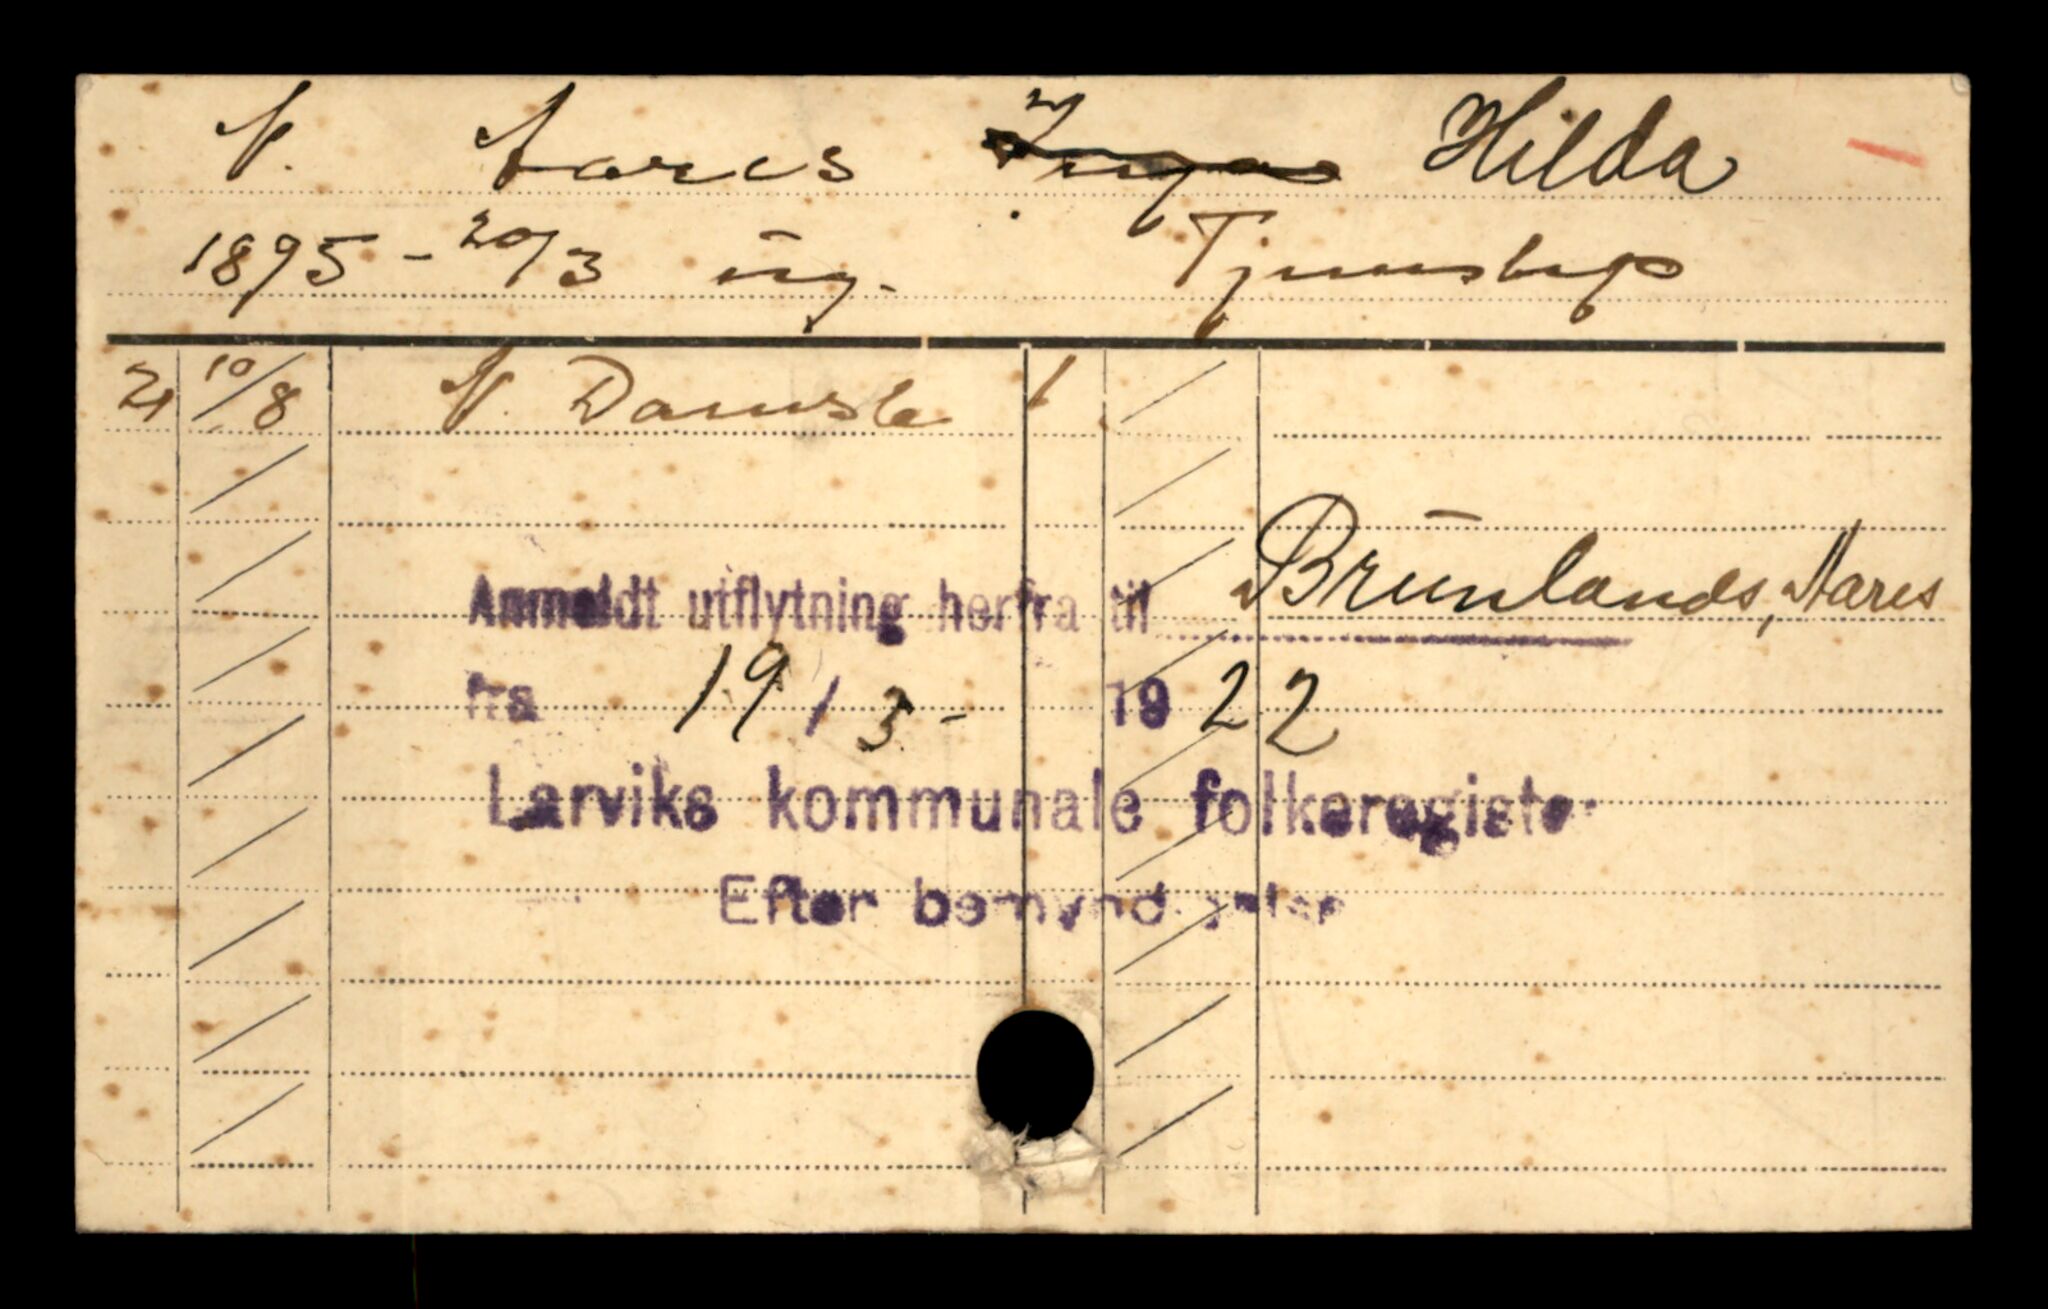 N. Aares Inga Hilda
1895 - 20/3 ug. Tjenstep
21 10/8 N. Damsle 1
Anmeldt utflytning herfra til Brunlands, Aares
fra 19/3- 1922
Larviks kommunale folkeregister
Efter bemyndigelse